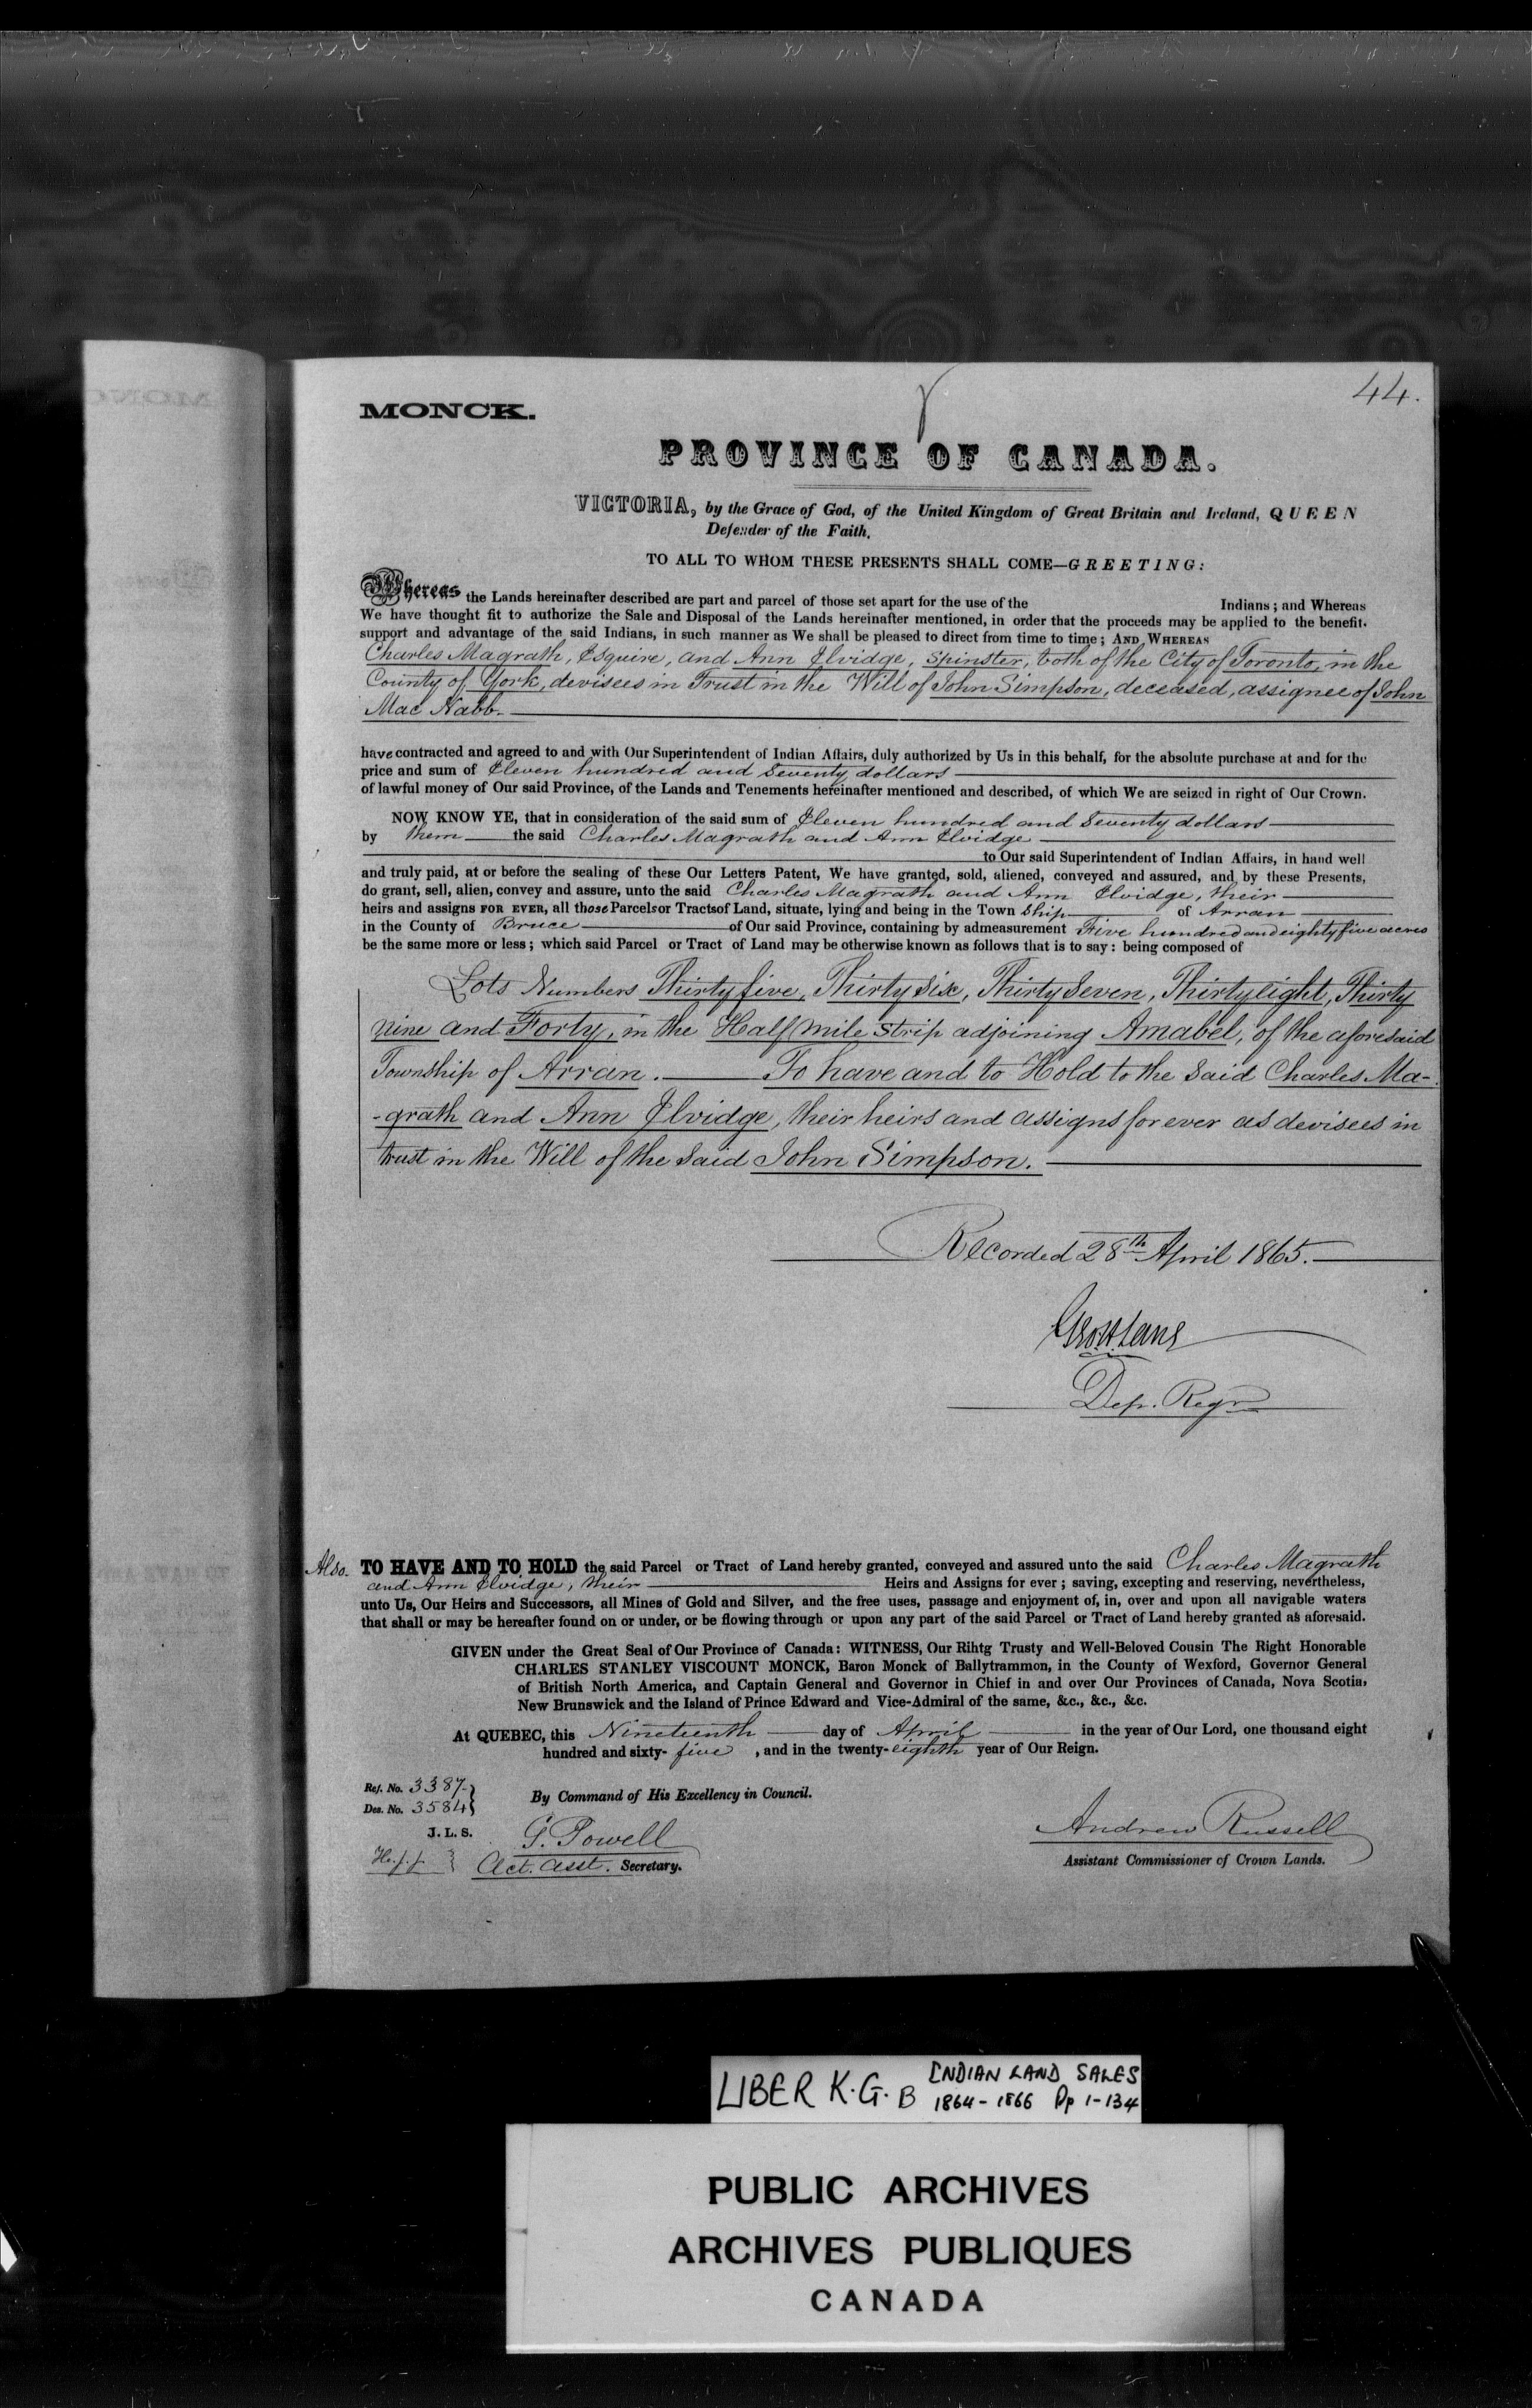 44.
MONCK.
PROVINCE OF CANADA.
VICTORIA, by the Grace of God, of the United Kingdom of Great Britain and Ireland, QUEEN
Defender of the Faith.
TO ALL TO WHOM THESE PRESENTS SHALL COME—GREETING:
Whereas the Lands hereinafter described are part and parcel of those set apart for the use of the Indians; and Whereas
We have thought fit to authorize the Sale and Disposal of the Lands hereinafter mentioned, in order that the proceeds may be applied to the benefit.
support and advantage of the said Indians, in such manner as We shall be pleased to direct from time to time; AND WHEREAS
Charles Magrath, Esquire, and Ann Elvidge, Spinster, both of the City of Toronto, in the
County of York, devisees in Trust in the Will of John Simpson, deceased, assignee of John
Mac Nabb.
have contracted and agreed to and with Our Superintendent of Indian Affairs, duly authorized by Us in this behalf, for the absolute purchase at and for the
price and sum of Eleven hundred and Seventy dollars
of lawful money of Our said Province, of the Lands and Tenements hereinafter mentioned and described, of which We are seized in right of Our Crown.
NOW KNOW YE, that in consideration of the said sum of Eleven hundred and Seventy dollars
by them the said Charles Magrath and Ann Elvidge
to Our said Superintendent of Indian Affairs, in hand well
and truly paid, at or before the sealing of these Our Letters Patent, We have granted, sold, aliened, conveyed and assured, and by these Presents,
do grant, sell, alien, convey and assure, unto the said Charles Magrath and Ann Elvidge, their
heirs and assigns FOR EVER, all those Parcels or Tracts of Land, situate, lying and being in the Town Ship of Arran
in the County of Bruce of Our said Province, containing by admeasurement Five hundred and eighty five acres
be the same more or less; which said Parcel or Tract of Land may be otherwise known as follows that is to say: being composed of
Lots Numbers Thirty five, Thirty Six, Thirty Seven, Thirty eight, Thirty
nine and Forty, in the Half Mile Strip adjoining Amabel, of the aforesaid
Township of Arran. To have and to Hold to the said Charles Ma-
-grath and Ann Elvidge, their heirs and assigns for ever as devisees in
trust in the Will of the Said John Simpson.
Recorded 28th April 1865.
Geo. H. Lane
Dep. Regr
Also. TO HAVE AND TO HOLD the said Parcel or Tract of Land hereby granted, conveyed and assured unto the said Charles Magrath
and Ann Elvidge, their Heirs and Assigns for ever; saving, excepting and reserving, nevertheless,
unto Us, Our Heirs and Successors, all Mines of Gold and Silver, and the free uses, passage and enjoyment of, in, over and upon all navigable waters
that shall or may be hereafter found on or under, or be flowing through or upon any part of the said Parcel or Tract of Land hereby granted as aforesaid.
GIVEN under the Great Seal of Our Province of Canada: WITNESS, Our Rihtg Trusty and Well-Beloved Cousin The Right Honorable
CHARLES STANLEY VISCOUNT MONCK, Baron Monck of Ballytrammon, in the County of Wexford, Governor General
of British North America, and Captain General and Governor in Chief in and over Our Provinces of Canada, Nova Scotia,
New Brunswick and the Island of Prince Edward and Vice-Admiral of the same, &c., &c., &c.
At QUEBEC, this Nineteenth day of April in the year of Our Lord, one thousand eight
hundred and sixty- five , and in the twenty-eighth year of Our Reign.
Ref. No. 3387
Des. No. 3584
By Command of His Excellency in Council.
J. L. S.
G. Powell
Act. Asst. Secretary.
Andrew Russell
Assistant Commissioner of Crown Lands.
LIBER K.G. B INDIAN LAND SALES
1864-1866 Pp 1-134
PUBLIC ARCHIVES
ARCHIVES PUBLIQUES
CANADA